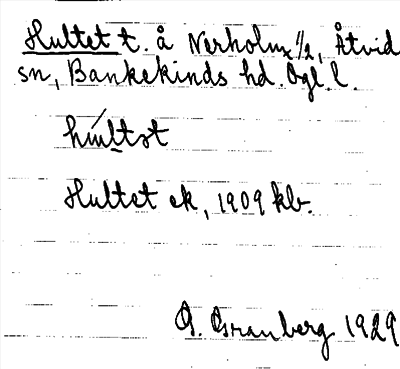 Hultet t. å Nerholm 1/2, Åtvid
sn, Bankekinds hd. Ögl. l.
Hultet ek, 1909 kb.
G. Granberg 1929